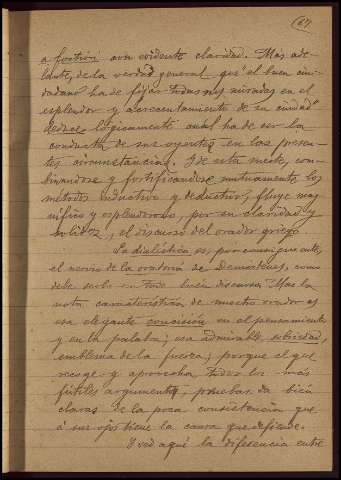 (67)
a fortiori con evidente claridad. Mas ade-
lante, de la verdad general "que el buen ciu-
dadano ha de fijar todas sus miradas en el
esplendor y acrecentamiento de su ciudad"
deduce lógicamente cuál ha de ser la
conducta de sus oyentes en las presen-
tes circunstancias. Y de esta suerte, com-
binándose y fortificándose mutuamente los
métodos inductivo y deductivo, fluye mag-
nífico y esplendoroso, por su claridad y
solidez, el discurso del orador griego.
La dialéctica es, por consiguiente,
el nervio de la oratoria de Demóstenes, como
debe serlo en todo buen discurso. Mas la
nota característica de nuestro orador es
esa elegante concisión en el pensamiento
y en la palabra; esa admirable sobriedad,
emblema de la fuerza; porque el que
recoge y aprovecha todos los más
fútiles argumentos, pruebas da bien
claras de la poca consistencia que
á sus ojos tiene la causa que defiende.
Y ved aquí la diferencia entre